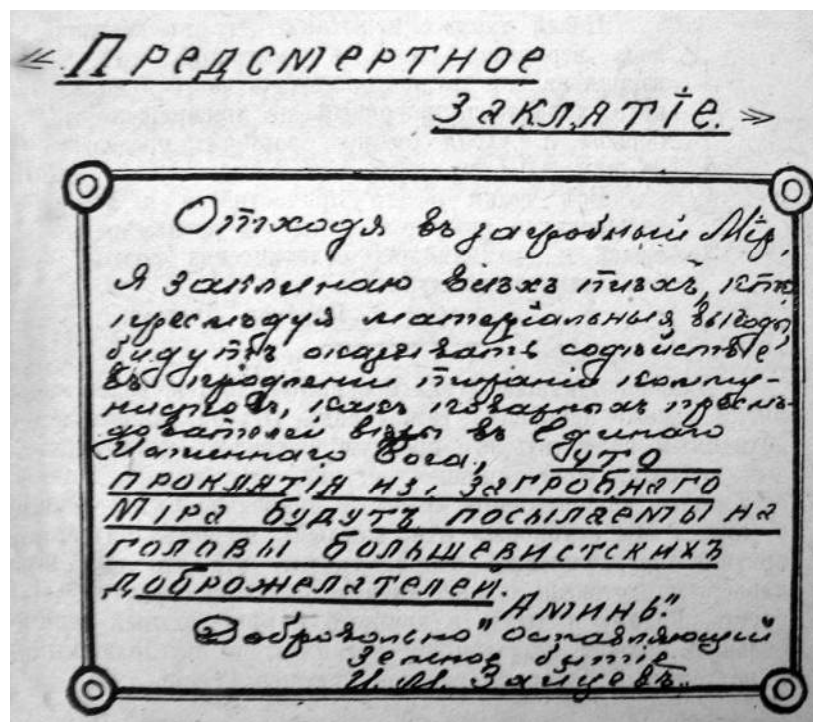 « Предсмертное
Заклятіе. »
Отходя въ загробный Мір,
Я заклинаю всѣхъ тѣхъ, кто
преслѣдуя матеріальныя выгоды,
будутъ оказывать содѣйствіе
въ продленіи тираніи комму-
нистовъ, какъ коварныхъ преслѣ-
дователей вѣры въ Единаго
Истиннаго Бога, что
проклятія из, загробнаго
міра будутъ посылаемы на
головы большевистскихъ
доброжелателей.
Аминь".
Добровольно "оставляющий"
земное бытіе
И. М. Зайцевъ.